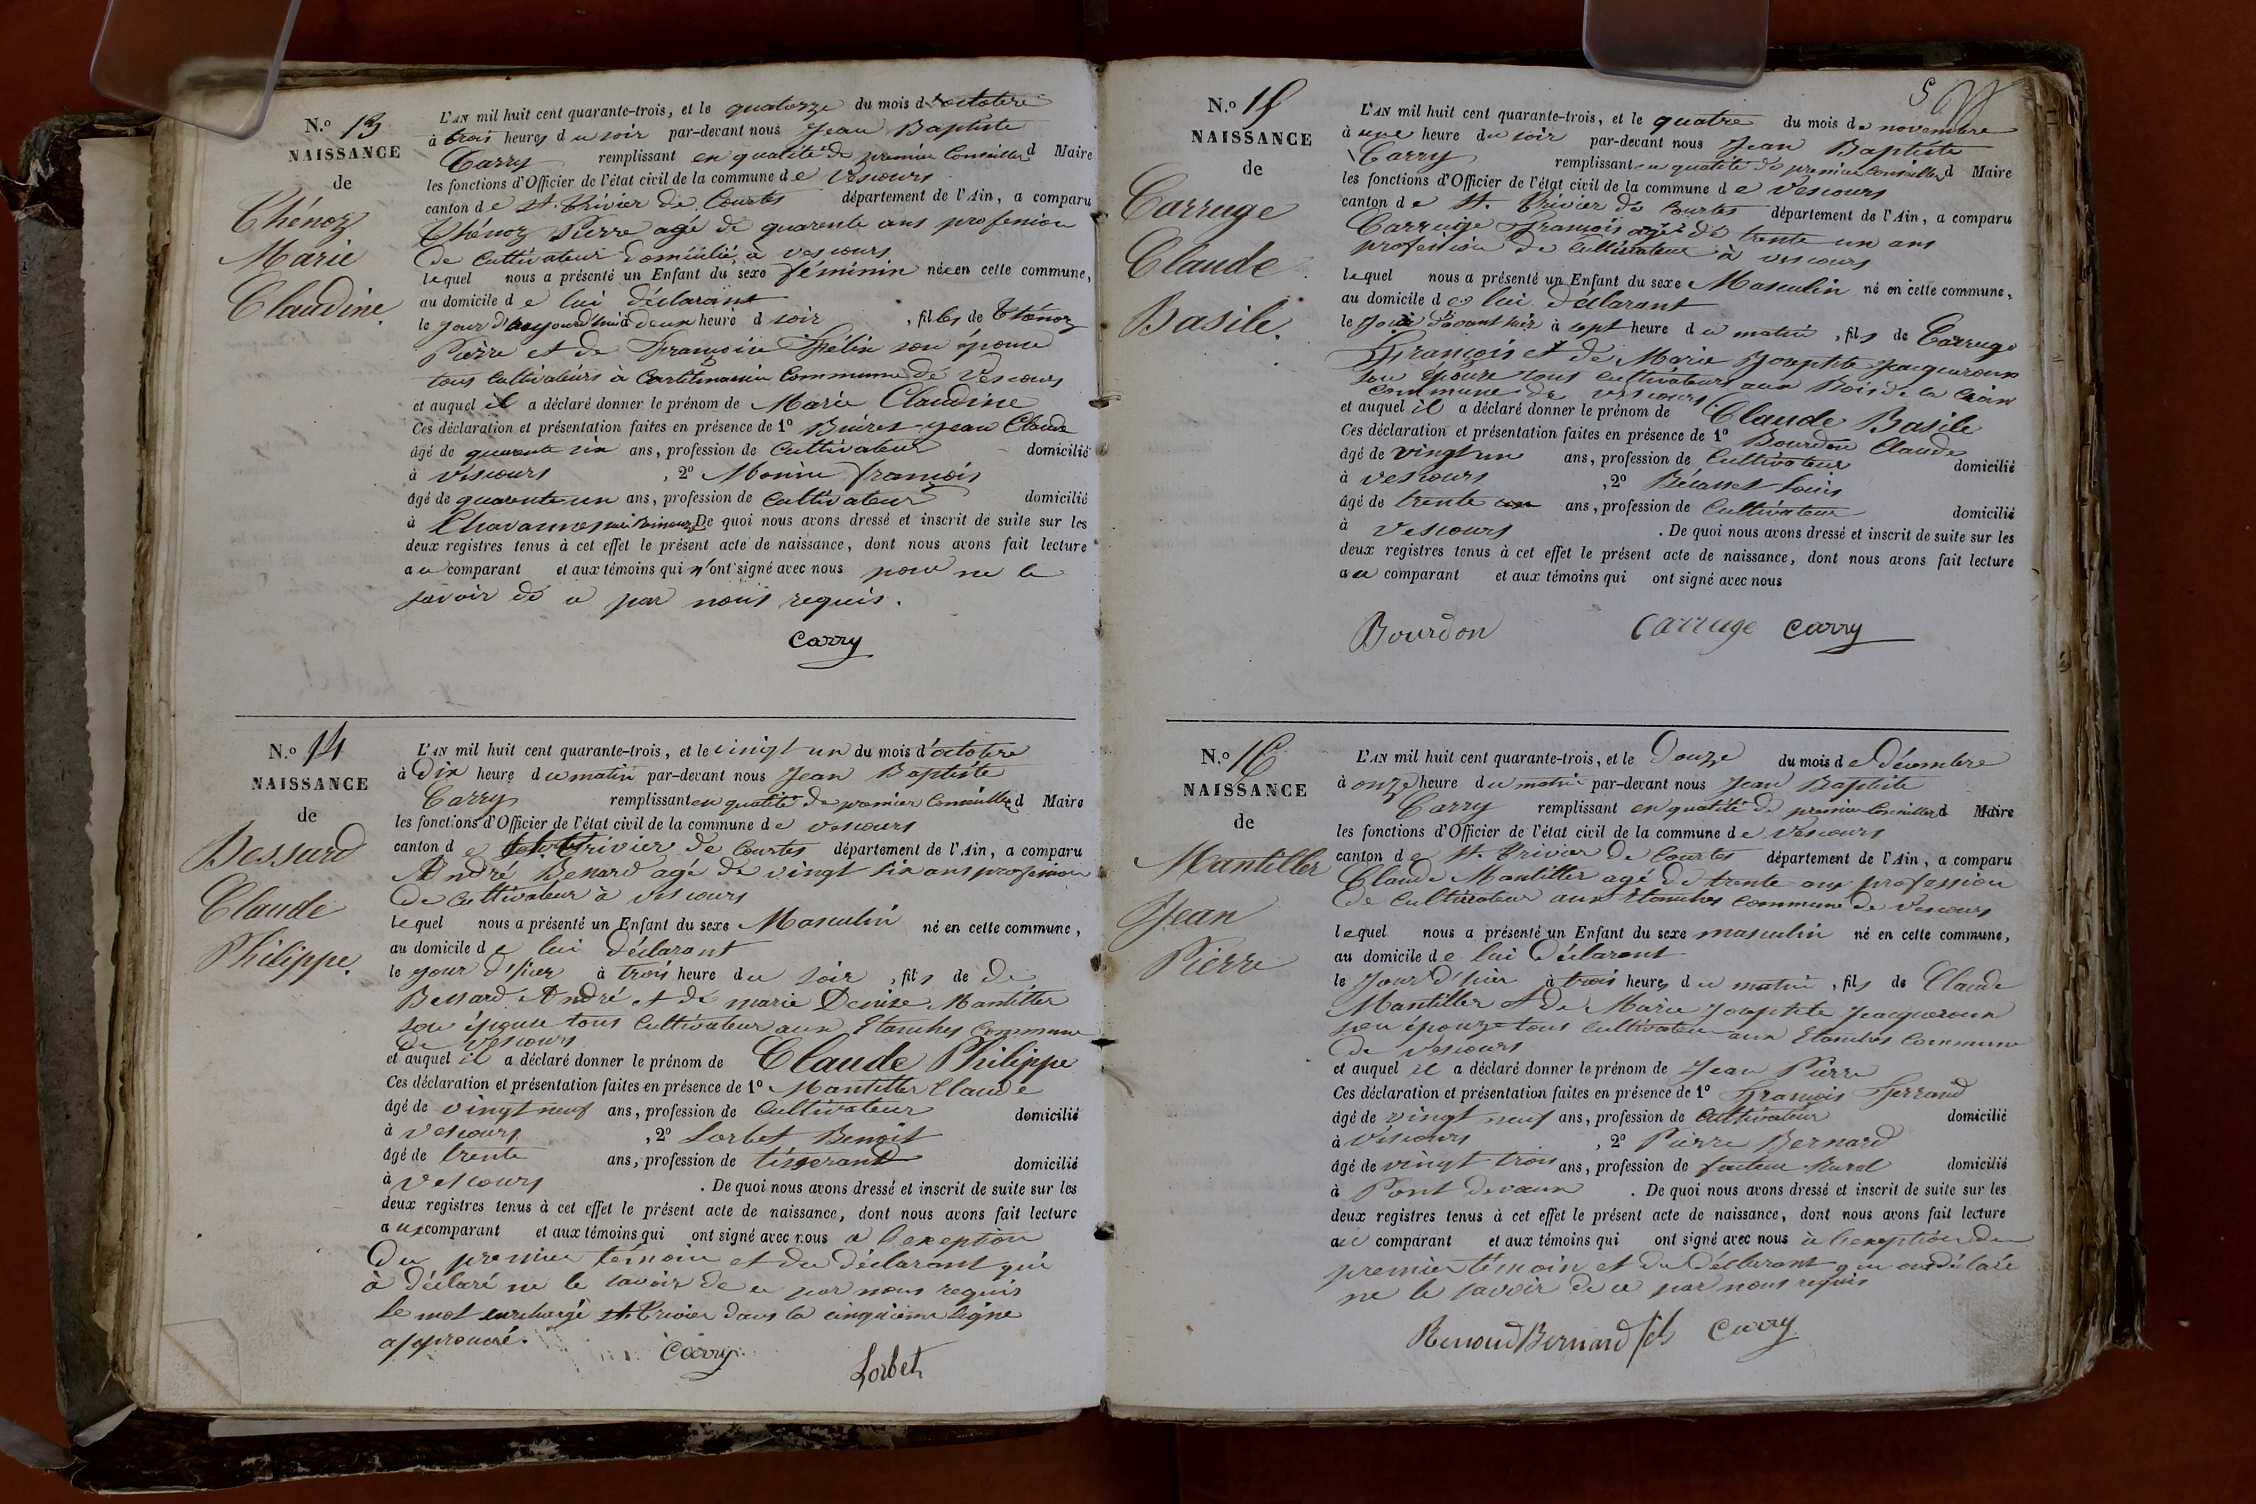 N.º 13
NAISSANCE
de
Thénoz
Marie
Claudine.
L'AN mil huit cent quarante-trois, et le quatorze du mois d'octobre
à trois heures du soir par-devant nous Jean Baptiste
Carry remplissant en qualité de premier Conseiller d Maire
les fonctions d'Officier de l'état civil de la commune de Vescours
canton de St. Trivier de Courtes département de l'Ain, a comparu
Thénoz Pierre agé de quarente ans profession
de Cultivateur domicilié à vescours
lequel nous a présenté un Enfant du sexe féminin née en cette commune,
au domicile de lui déclarant
le jour d'aujourd'hui à deux heure d soir, filles de Thénoz
Pierre et de Françoise Félix son épouse
tous cultivateurs à Commune de Vescours
et auquel il a déclaré donner le prénom de Marie Claudine
Ces déclaration et présentation faites en présence de 1º Jean Claude
âgé de quarente six ans, profession de Cultivateur domicilié
à Vescours, 2º Monin françois
âgé de quarente un ans, profession de Cultivateur domicilié
à Chavannes sur Reissouze De quoi nous avons dressé et inscrit de suite sur les
deux registres tenus à cet effet le présent acte de naissance, dont nous avons fait lecture
au comparant et aux témoins qui n'ont signé avec nous pour ne le
savoir de ce par nous requis.
Carry
N.º 14
NAISSANCE
de
Bessard
Claude
Philippe.
L'AN mil huit cent quarante-trois, et le vingt un du mois d'octobre
à Dix heure du matin par-devant nous Jean Baptiste
Carry remplissant en qualité de premier Conseiller d Maire
les fonctions d'Officier de l'état civil de la commune de vescours
canton de St. Trivier de Courtes département de l'Ain, a comparu
André Bessard agé de vingt six ans profession
de cultivateur à vescours
lequel nous a présenté un Enfant du sexe Masculin né en cette commune,
au domicile de lui déclarant
le jour d'hier à trois heure du soir, fils de de
Bessard André et de marie Denise Mantiller
son épouse tous Cultivateur aux Etanches Commune
de Vescours
et auquel il a déclaré donner le prénom de Claude Philippe
Ces déclaration et présentation faites en présence de 1º Mantiller Claude
âgé de vingt neuf ans, profession de Cultivateur domicilié
à Vescours, 2º Lorbet Benoit
âgé de trente ans, profession de tisserand domicilié
à Vescours. De quoi nous avons dressé et inscrit de suite sur les
deux registres tenus à cet effet le présent acte de naissance, dont nous avons fait lecture
aux comparant et aux témoins qui ont signé avec nous a l'exeption
du premier témoin et du déclarant qui
à déclaré ne le savoir de ce par nous requis
le mot surchargé St. Trivier dans la cinquième ligne
approuvé.
Carry
Lorbet
5
N.º 15
NAISSANCE
de
Carruge
Claude
Basile.
L'AN mil huit cent quarante-trois, et le quatre du mois de novembre
à une heure du soir par-devant nous Jean Baptiste
Carry remplissant en qualité de premier Conseiller d Maire
les fonctions d'Officier de l'état civil de la commune de Vescours
canton de St. Trivier de Courtes département de l'Ain, a comparu
Carruge François agé de trente un ans
profession de Cultivateur à vescours
lequel nous a présenté un Enfant du sexe Masculin né en cette commune,
au domicile de lui déclarant
le jour d'avant hier à sept heure du matin, fils de Carruge
François et de Marie Josephte Jacqueroux
son épouse tous cultivateurs aux Bois de la Croix
Commune de vescours.
et auquel il a déclaré donner le prénom de Claude Basile
Ces déclaration et présentation faites en présence de 1º Bourdon Claude
âgé de vingt un ans, profession de Cultivateur domicilié
à vescours, 2º Bécasset Louis
âgé de trente un ans, profession de Cultivateur domicilié
à Vescours. De quoi nous avons dressé et inscrit de suite sur les
deux registres tenus à cet effet le présent acte de naissance, dont nous avons fait lecture
au comparant et aux témoins qui ont signé avec nous
Bourdon Carruge Carry
N.º 16
NAISSANCE
de
Mantiller
Jean
Pierre
L'AN mil huit cent quarante-trois, et le Douze du mois de décembre
à onze heure du matin par-devant nous Jean Baptiste
Carry remplissant en qualité de premier Conseiller d Maire
les fonctions d'Officier de l'état civil de la commune de Vescours
canton de St. Trivier de Courtes département de l'Ain, a comparu
Claude Mantiller agé de trente ans profession
de Cultivateur aux Etanches Commune de Vescours
lequel nous a présenté un Enfant du sexe masculin né en cette commune,
au domicile de lui déclarant
le Jour d'hier à trois heures du matin, fils de Claude
Mantiller et de Marie Josephte Jacqueroux
son épouze tous cultivateur aux Etanches Commune
de Vescours
et auquel il a déclaré donner le prénom de Jean Pierre
Ces déclaration et présentation faites en présence de 1º François Ferrand
âgé de vingt neuf ans, profession de Cultivateur domicilié
à Vescours, 2º Pierre Bernard
âgé de vingt trois ans, profession de facteur Rural domicilié
à Pont devaux. De quoi nous avons dressé et inscrit de suite sur les
deux registres tenus à cet effet le présent acte de naissance, dont nous avons fait lecture
au comparant et aux témoins qui ont signé avec nous à l'exeption du
premier témoin et du déclarant qui ont déclaré
ne le savoir de ce par nous requis
Renoud Bernard fils Carry